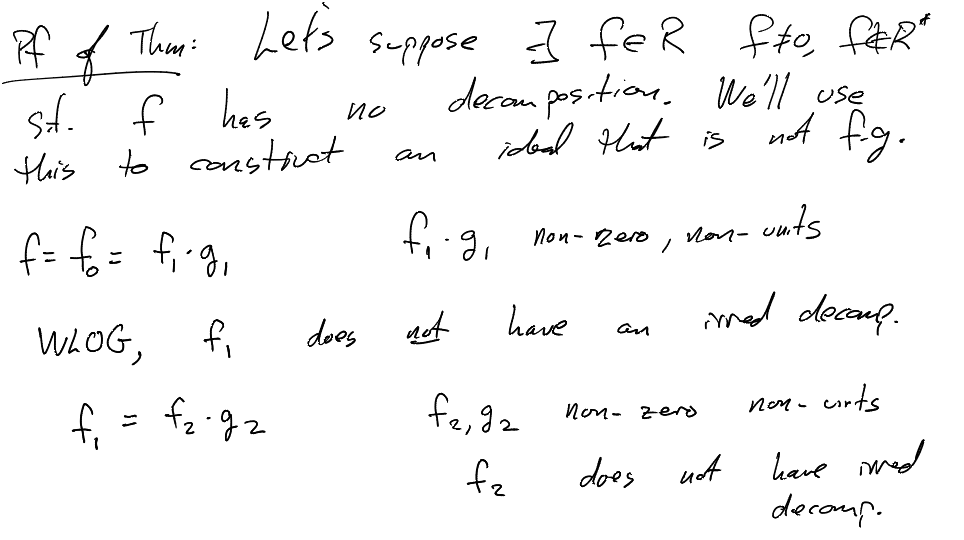 Pf of Thm: Let's suppose ∃ f∈R f≠0, f∉R*
s.t. f has no decomposition. We'll use
this to construct an ideal that is not f.g.
f = f₀ = f₁·g₁ f₁·g₁ non-zero, non-units
WLOG, f₁ does not have an irred decomp.
f₁ = f₂·g₂ f₂, g₂ non-zero non-units
f₂ does not have irred
decomp.